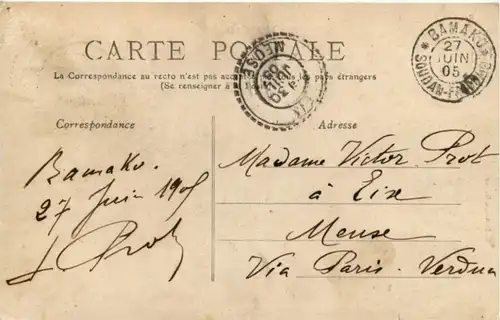 CARTE POSTALE
BAMAKO
27
JUIN
05
SOUDAN-FRANÇAIS
La Correspondance au recto n'est pas acceptée par tous les pays étrangers
(Se renseigner à la Poste)
Correspondance
Adresse
Bamako.
27 Juin 1905
Prot
Madame Victor Prot
à Eix
Meuse
Via Paris. Verdun